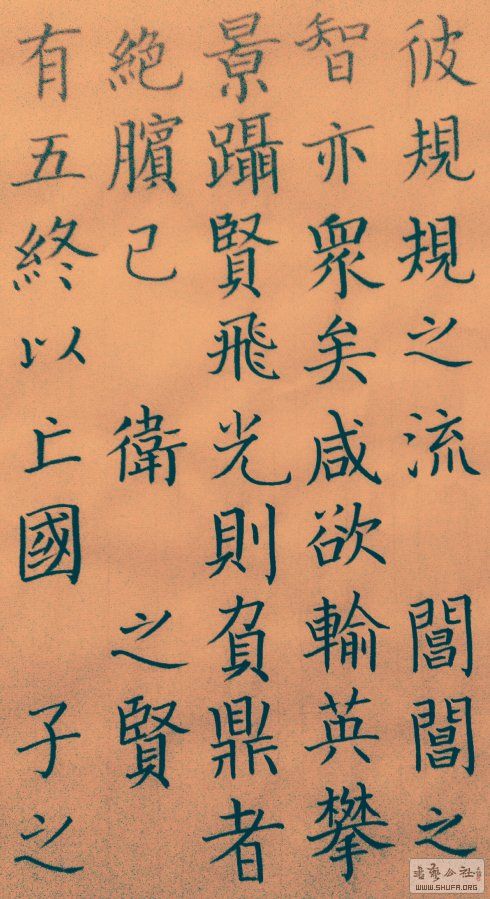 彼規規之流 閶閶之
智亦衆矣咸欲輸英攀
景躡賢飛光則負鼎者
絶臏已 衛 之賢
有五終以亡國 子之
书艺公社
WWW.SHUFA.ORG